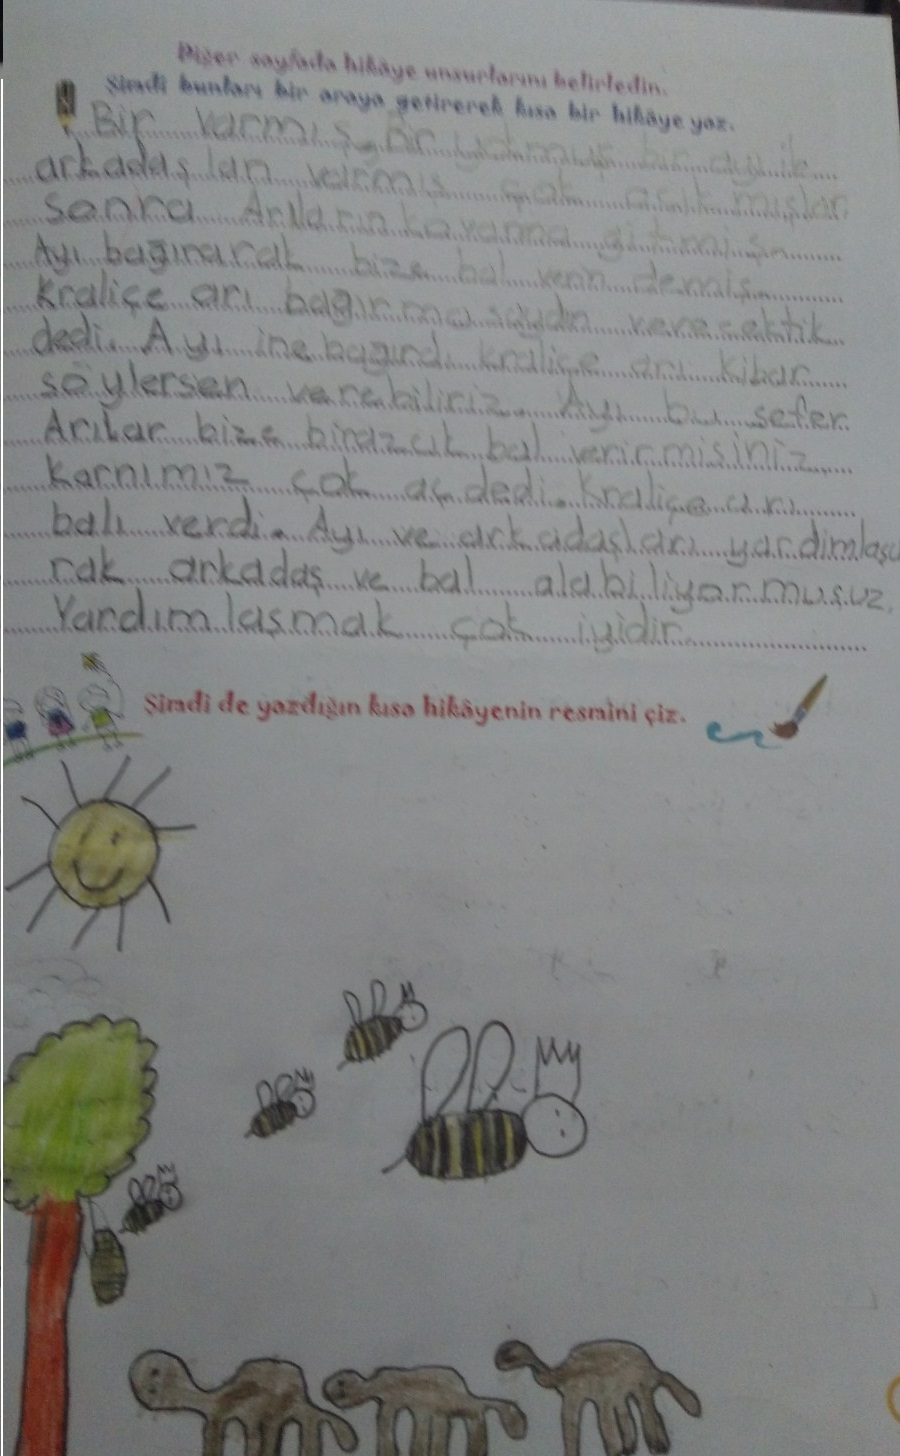 Diğer sayfada hikâye unsurlarını belirledin.
Şimdi bunları bir araya getirerek kısa bir hikâye yaz.
Bir varmış Bir yokmuş bir ayı ile
arkadaşları varmış çok acıkmışlar
Sonra Arıların kovanına gitmiş
Ayı bağırarak bize bal verin demiş.
Kraliçe arı bağırmasaydın verecektik
dedi. Ayı ine bagırdı kraliçe arı Kibar
söylersen verebiliriz. Ayı bu sefer
Arılar bize birazcık bal verirmisiniz
Karnımız çok aç dedi. Kraliçe arı
balı verdi. Ayı ve arkadaşları yardımlaşa
rak arkadaş ve bal alabiliyormuşuz.
Yardımlaşmak çok iyidir.
Şimdi de yazdığın kısa hikâyenin resmini çiz.